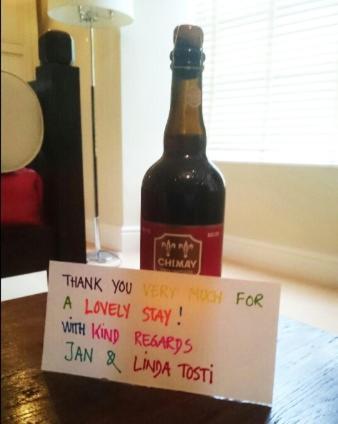 CHIMAY
THANK YOU VERY MUCH FOR
A LOVELY STAY!
WITH KIND REGARDS
JAN & LINDA TOSTI